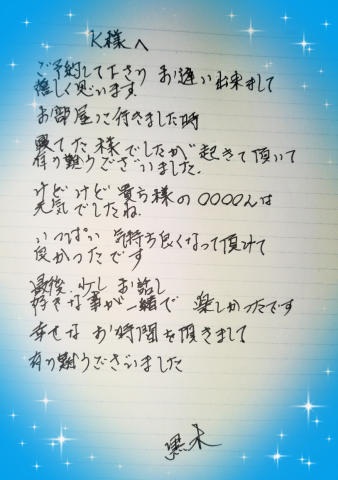 K様へ
ご予約して下さり お逢い出来まして
嬉しく思います
お部屋に行きました時
寝てた様でしたが 起きて頂いて
有り難うございました.
けど けど 貴方様の ○○○○んは
元気でしたね.
いっぱい 気持ち良くなって頂けて
良かったです
最後 少し お話し
好きな事が一緒で 楽しかったです
幸せな お時間を頂きまして
有り難うございました
黒木